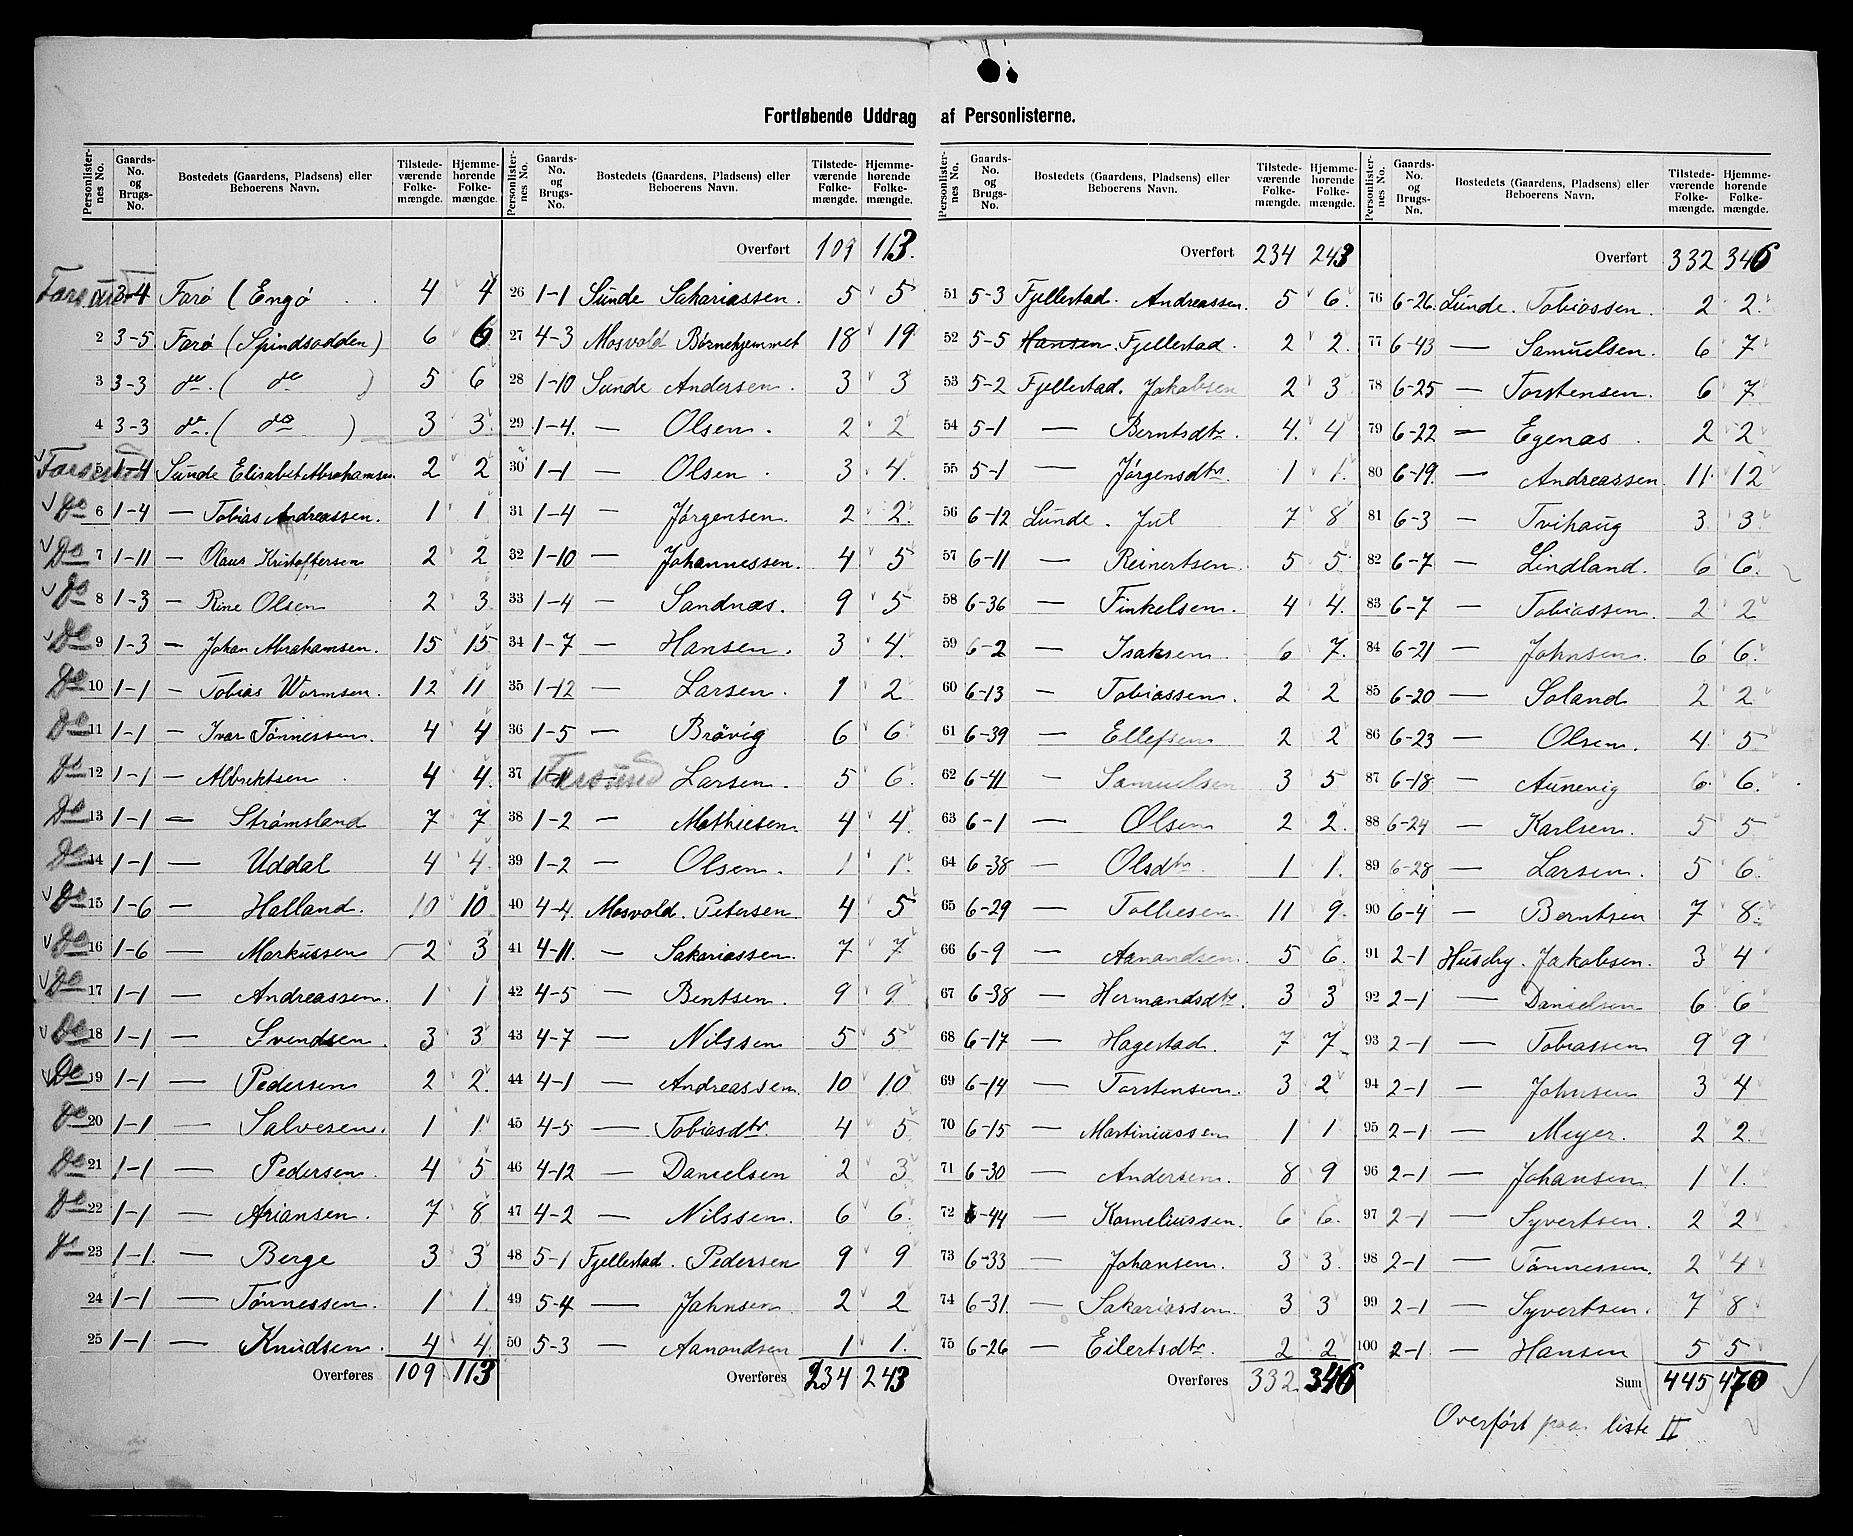 Fortløbende Uddrag af Personlisterne.
Personlisternes No. | Gaards-No. og Brugs-No. | Bostedets (Gaardens, Pladsens) eller Beboerens Navn. | Tilstedeværende Folkemængde. | Hjemmehørende Folkemængde.
Farsund 3-4 Farø (Engø 4 4
2 3-5 Farø (Spindsodden) 6 6
3 3-3 do. ( do ) 5 6
4 3-3 do. ( do ) 3 3
Farsund 5 1-4 Sunde Elisabet Abrahamsen. 2 2
Do 6 1-4 — Tobias Andreassen. 1 1
Do 7 1-11 — Olaus Kristoffersen 2 2
Do 8 1-3 — Rine Olsen 2 3
Do 9 1-3 — Johan Abrahamsen. 15 15
Do 10 1-1 — Tobias Wormsen. 12 11
Do 11 1-1 — Ivar Tönnessen. 4 4
Do 12 1-1 — Albrektsen 4 4.
Do 13 1-1 — Strømsland 7 7
Do 14 1-1 — Uddal 4 4.
Do 15 1-6 — Halland. 10 10
Do 16 1-6 — Markussen 2 3
Do 17 1-1 — Andreassen. 1 1
Do 18 1-1 — Svendsen. 3 3
Do 19 1-1 — Pedersen 2 2.
Do 20 1-1 — Salvesen. 1 1
Do 21 1-1 — Pedersen. 4 5
Do 22 1-1 — Ariansen. 7 8
Do 23 1-1. — Berge 3 3
24 1-1 — Tönnessen. 1 1.
25 1-1 — Knudsen. 4 4.
Overføres 109 113
Personlisternes No. | Gaards-No. og Brugs-No. | Bostedets (Gaardens, Pladsens) eller Beboerens Navn. | Tilstedeværende Folkemængde. | Hjemmehørende Folkemængde.
Overført 109 113.
26 1-1 Sunde Sakariassen. 5 5
27 4-3 Mosvold Børnehjemmet 18 19
28 1-10 Sunde Andersen. 3 3
29 1-4. — Olsen. 2 2
30 1-1 — Olsen. 3 4.
31 1-4 — Jørgensen. 2 2.
32 1-10 — Johannessen. 4 5
33 1-4 — Sandnæs. 9 5
34 1-7 — Hansen. 3 4.
35 1-12 — Larsen. 1 2
36 1-5 — Brövig 6 6
37 Farsund — Larsen. 5 6.
38 1-2 — Mathiesen 4 4.
39 1-2 — Olsen. 1 1.
40 4-4 Mosvold. Petersen 4 5
41 4-11. — Sakariassen. 7 7
42 4-5 — Bentsen. 9 9
43 4-7 — Nilssen 5 5
44 4-1 — Andreassen 10 10
45 4-5 — Tobiasdtr. 4 5
46 4-12 — Danielsen 2 3
47 4-2 — Nilssen. 6 6.
48 5-1 Fjellestad. Pedersen 9 9
49 5-4 — Johnsen. 2 2
50 5-3 — Aanondsen 1 1.
Overføres 234 243
Personlisternes No. | Gaards-No. og Brugs-No. | Bostedets (Gaardens, Pladsens) eller Beboerens Navn. | Tilstedeværende Folkemængde. | Hjemmehørende Folkemængde.
Overført 234 243
51 5-3 Fjellestad. Andreassen. 5 6.
52 5-5 Hansen. Fjellestad. 2 2.
53 5-2 Fjellestad. Jakobsen 2 3.
54 5-1 — Berntsdtr. 4. 4
55 5-1 — Jørgensdtr. 1 1.
56 6-12 Lunde. Jul 7 8
57 6-11 — Reinertsen. 5 5
58 6-36 — Finkelsen. 4 4.
59 6-2 — Isaksen. 6 7.
60 6-13 — Tobiassen. 2 2
61 6-39 — Ellefsen 2 2
62 6-41 — Samuelsen 3 5
63 6-1 — Olsen 2 2.
64 6-38 — Olsdtr 1 1.
65 6-29 — Tollessen. 11 9.
66 6-9 — Aanondsen. 5 6.
67 6-38 — Hermandsdtr. 3 3
68 6-17 — Hagestad. 7 7
69 6-14 — Torstensen. 3 2
70 6-15 — Martiniussen 1 1
71 6-30 — Andersen. 8 9
72 6-44 — Korneliussen. 6 6.
73 6-33 — Johansen. 3 3.
74 6-31. — Sakariassen. 3 3
75 6-26 — Eilertsdtr. 2 2
Overføres 332 346
Personlisternes No. | Gaards-No. og Brugs-No. | Bostedets (Gaardens, Pladsens) eller Beboerens Navn. | Tilstedeværende Folkemængde. | Hjemmehørende Folkemængde.
Overført 332 346
76 6-26. Lunde. Tobiassen. 2 2.
77 6-43 — Samuelsen. 6 7
78 6-25 — Torstensen. 6 7
79 6-22 — Egenæs. 2 2
80 6-19. — Andreassen 11. 12
81 6-3 — Tvihaug 3 3.
82 6-7 — Lindland. 6 6.
83 6-7 — Tobiassen. 2 2
84 6-21 — Johnsen. 6 6.
85 6-20 — Soland 2 2
86 6-23 — Olsen. 4. 5
87 6-18 — Aunevig 6 6.
88 6-24 — Karlsen. 5 5
89 6-28 — Larsen. 5 6.
90 6-4 — Berntsen 7 8.
91 2-1 Huseby. Jakobsen. 3 4
92 2-1 — Danielsen 6 6
93 2-1 — Tobiassen 9 9
94 2-1 — Johnsen 3 4
95 2-1 — Meyer. 2 2.
96 2-1 — Johansen. 1 1.
97 2-1 — Syvertsen. 2 2
98 2-1 — Tönnessen. 2 4
99 2-1 — Syvertsen. 7 8
100 2-1 — Hansen 5 5
Sum 445 470
Overført paa liste II